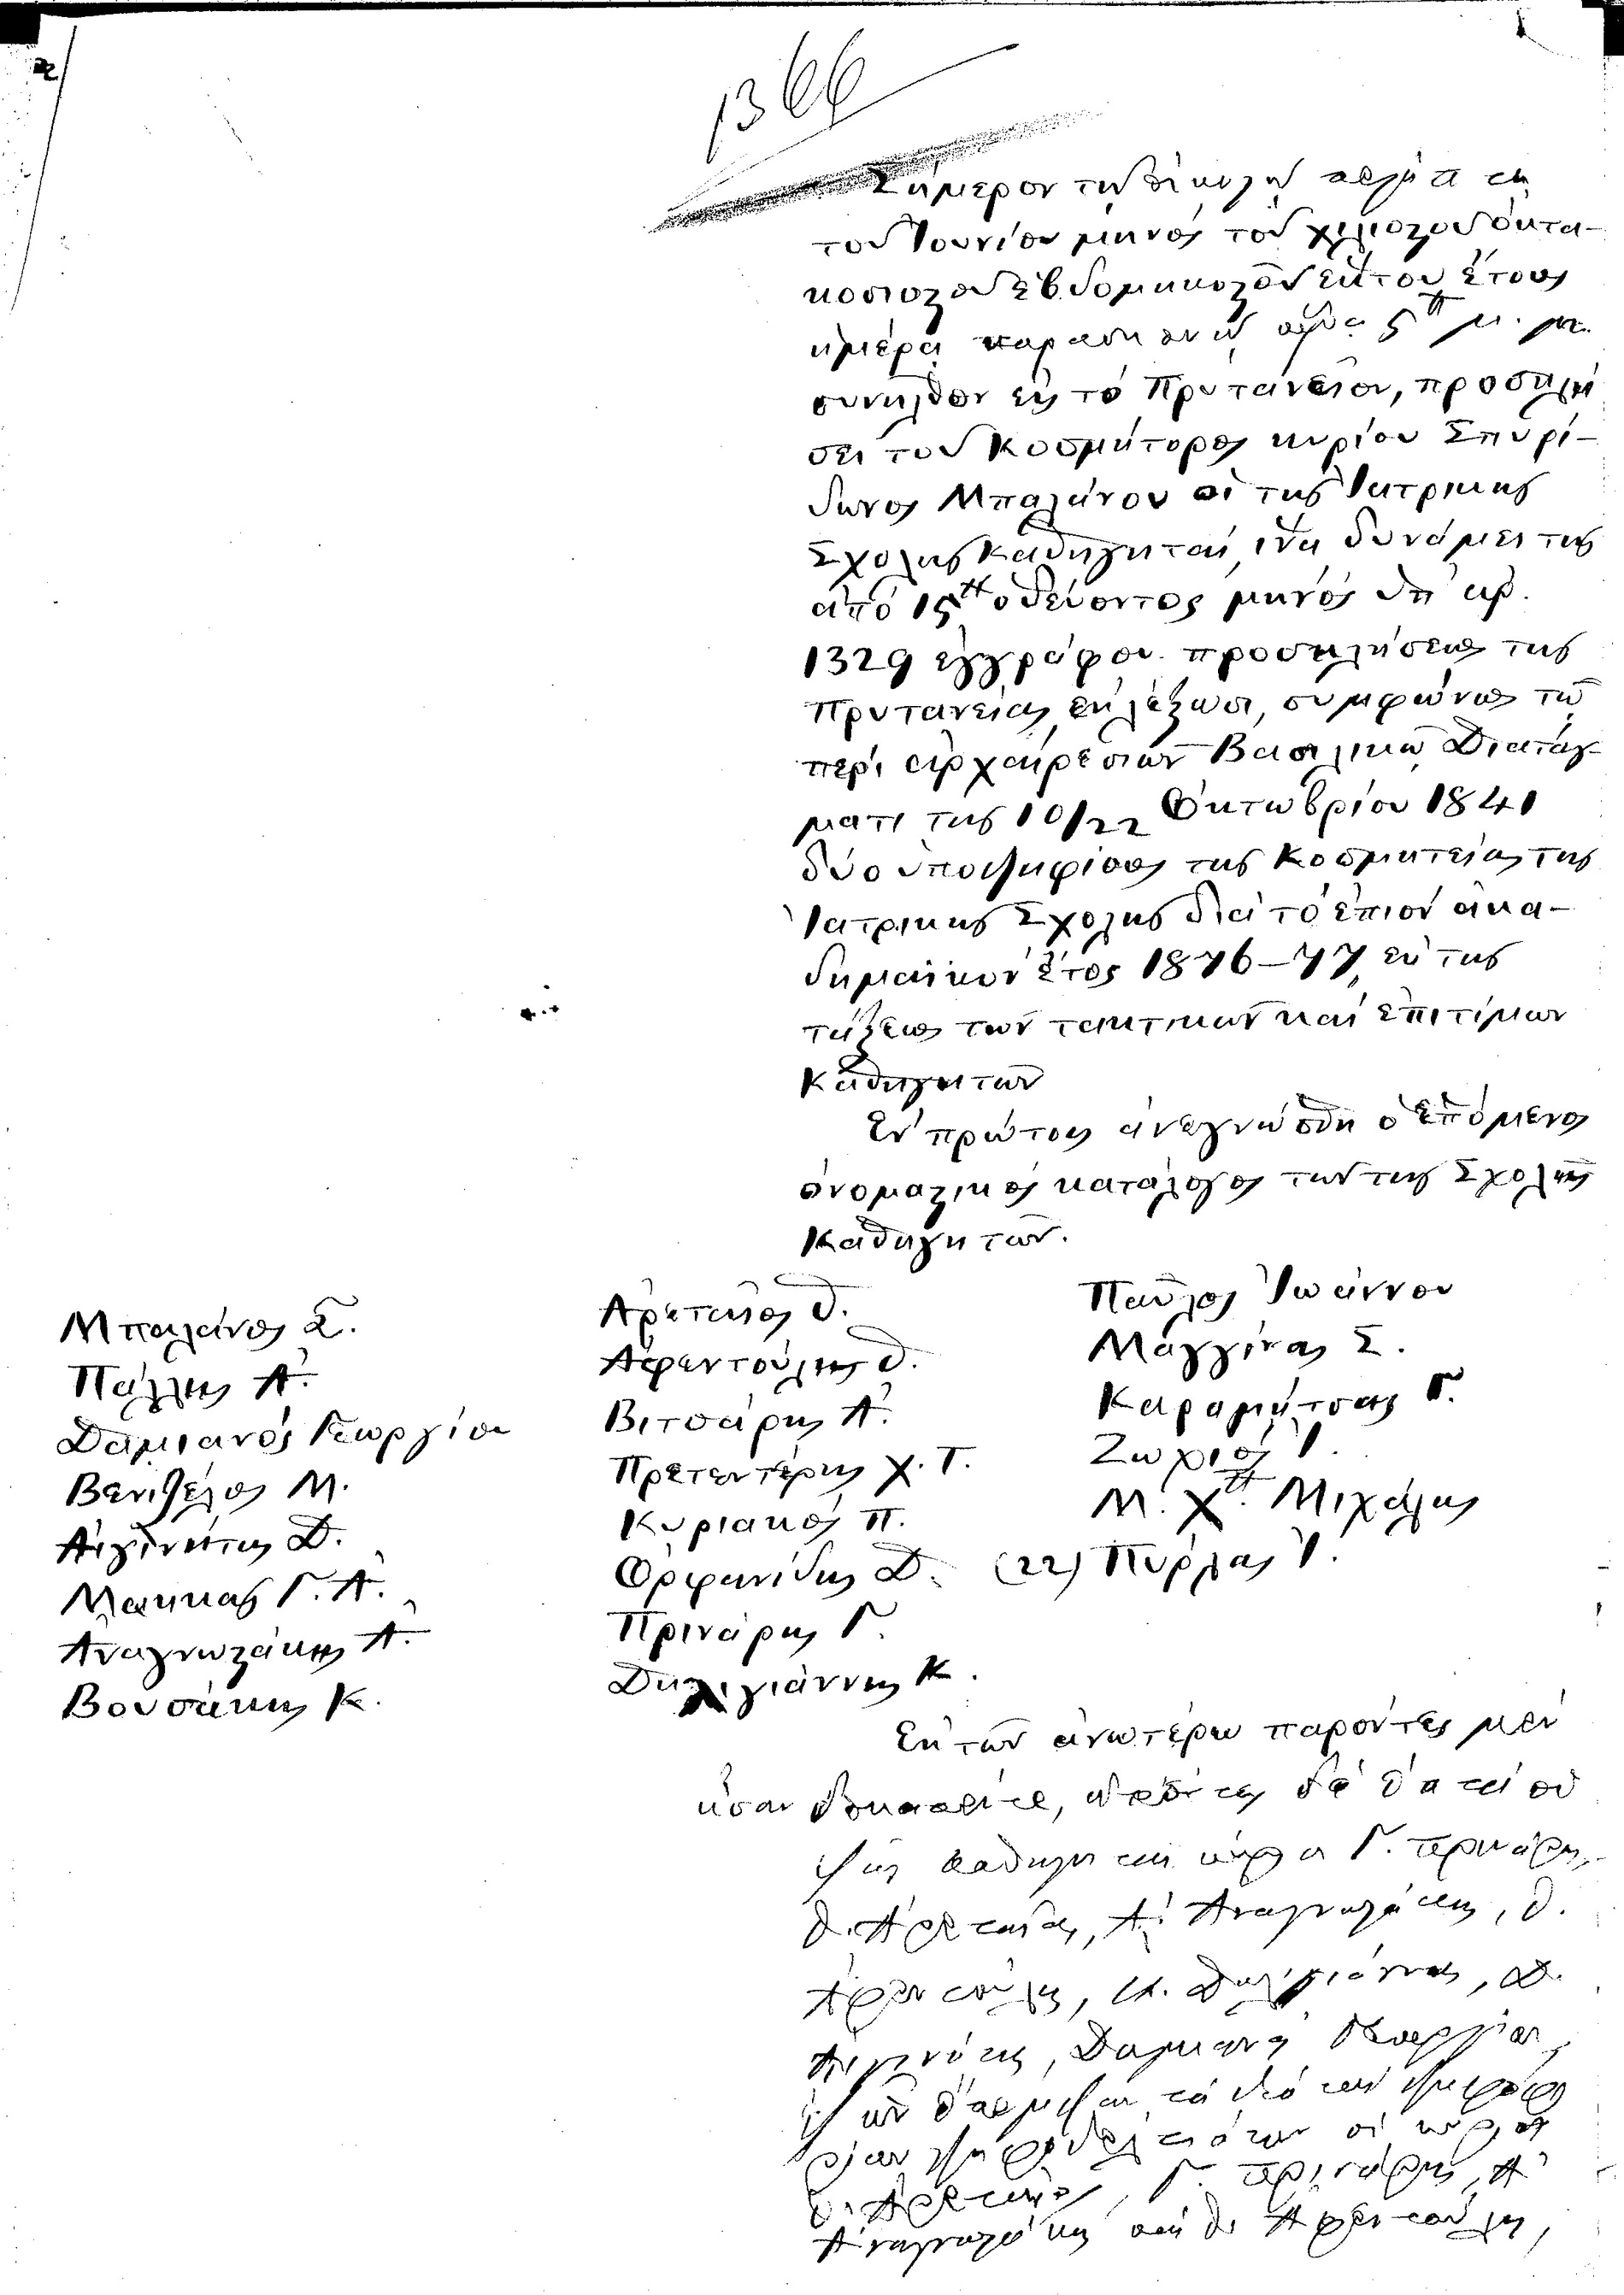 1366
Σήμερον τῇ εἰκοστῇ
τοῦ Ἰουνίου μηνὸς τοῦ χιλιοστοῦ ὀκτα-
κοσιοστοῦ ἑβδομηκοστοῦ ἕκτου ἔτους
ἡμέρᾳ παρασκευῇ ὥρᾳ 5 μ. μ.
συνῆλθον εἰς τὸ Πρυτανεῖον, προσκλή
σει τοῦ Κοσμήτορος κυρίου Σπυρί-
δωνος Μπαλάνου οἱ τῆς Ἰατρικῆς
Σχολῆς Καθηγηταί, ἵνα δυνάμει τῆς
ἀπὸ 15 ὁδεύοντος μηνὸς ὑπ' ἀρ.
1329 ἐγγράφου προσκλήσεως τῆς
Πρυτανείας, ἐκλέξωσι, συμφώνως τῷ
περὶ ἀρχαιρεσιῶν Βασιλικῷ Διατάγ-
ματι τῆς 10/22 Ὀκτωβρίου 1841
δύο ὑποψηφίους τῆς Κοσμητείας τῆς
Ἰατρικῆς Σχολῆς διὰ τὸ ἐπιὸν ἀκα-
δημαϊκὸν ἔτος 1876-77, ἐκ τῆς
τάξεως τῶν τακτικῶν καὶ ἐπιτίμων
Καθηγητῶν
Ἐν πρώτοις ἀνεγνώσθη ὁ ἑπόμενος
ὀνομαστικὸς κατάλογος τῶν τῆς Σχολῆς
Καθηγητῶν.
Μπαλάνος Σ.
Πάλλης Ἀ.
Δαμιανὸς Γεωργίου
Βενιζέλος Μ.
Αἰγινήτης Δ.
Μακκᾶς Γ. Ἀ.
Ἀναγνωστάκης Ἀ.
Βουσάκης Κ.
Ἀρεταῖος Θ.
Ἀφεντούλης Θ.
Βιτσάρης Ἀ.
Πρετεντέρης Χ. Τ.
Κυριακὸς Π.
Ὀρφανίδης Δ.
Πρινάρης Γ.
Δηλιγιάννης Κ.
Παῦλος Ἰωάννου
Μαγγίνας Σ.
Καραμήτσας Γ.
Ζωχιὸς Ἰ.
Μ. Χ. Μιχάλης
(22) Πύρλας Ἰ.
Ἐκ τῶν ἀνωτέρω παρόντες μὲν
ἦσαν δεκαπέντε, ἀπόντες δὲ
ἑξῆς καθηγηταὶ κύριοι Γ. Πρινάρης,
Θ. Ἀρεταῖος, Ἀ. Ἀναγνωστάκης, Θ.
Ἀφεντούλης, Κ. Δηλιγιάννης, Δ.
Αἰγινήτης, Δαμιανὸς Γεωργίου,
οἱ κύριοι
Θ. Ἀρεταῖος, Γ. Πρινάρης, Ἀ.
Ἀναγνωστάκης καὶ Θ. Ἀφεντούλης,